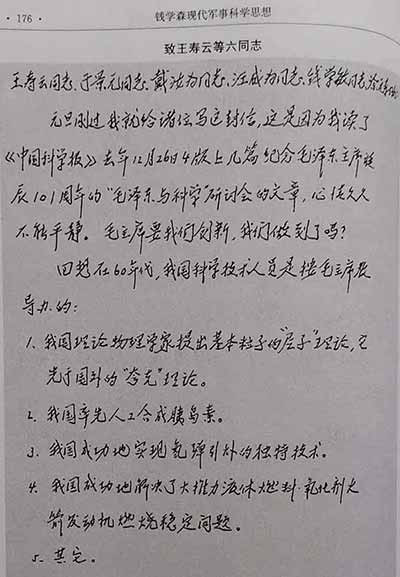 · 176 ·
钱学森现代军事科学思想
致王寿云等六同志
王寿云同志、于景元同志、戴汝为同志、汪成为同志、钱学敏同志、涂元季同志:
元旦刚过我就给诸位写这封信,这是因为我读了
《中国科学报》去年12月26日4版上几篇纪念毛泽东主席诞
辰101周年的“毛泽东与科学”研讨会的文章,心情久久
不能平静。毛主席要我们创新,我们做到了吗?
回想在60年代,我国科学技术人员是按毛主席教
导办的:
1. 我国理论物理学家提出基本粒子的“层子”理论,它
先于国外的“夸克”理论。
2. 我国率先人工合成胰岛素。
3. 我国成功地实现氢弹引爆的独特技术。
4. 我国成功地解决了大推力液体燃料·氧化剂火
箭发动机燃烧稳定问题。
5. 其它。